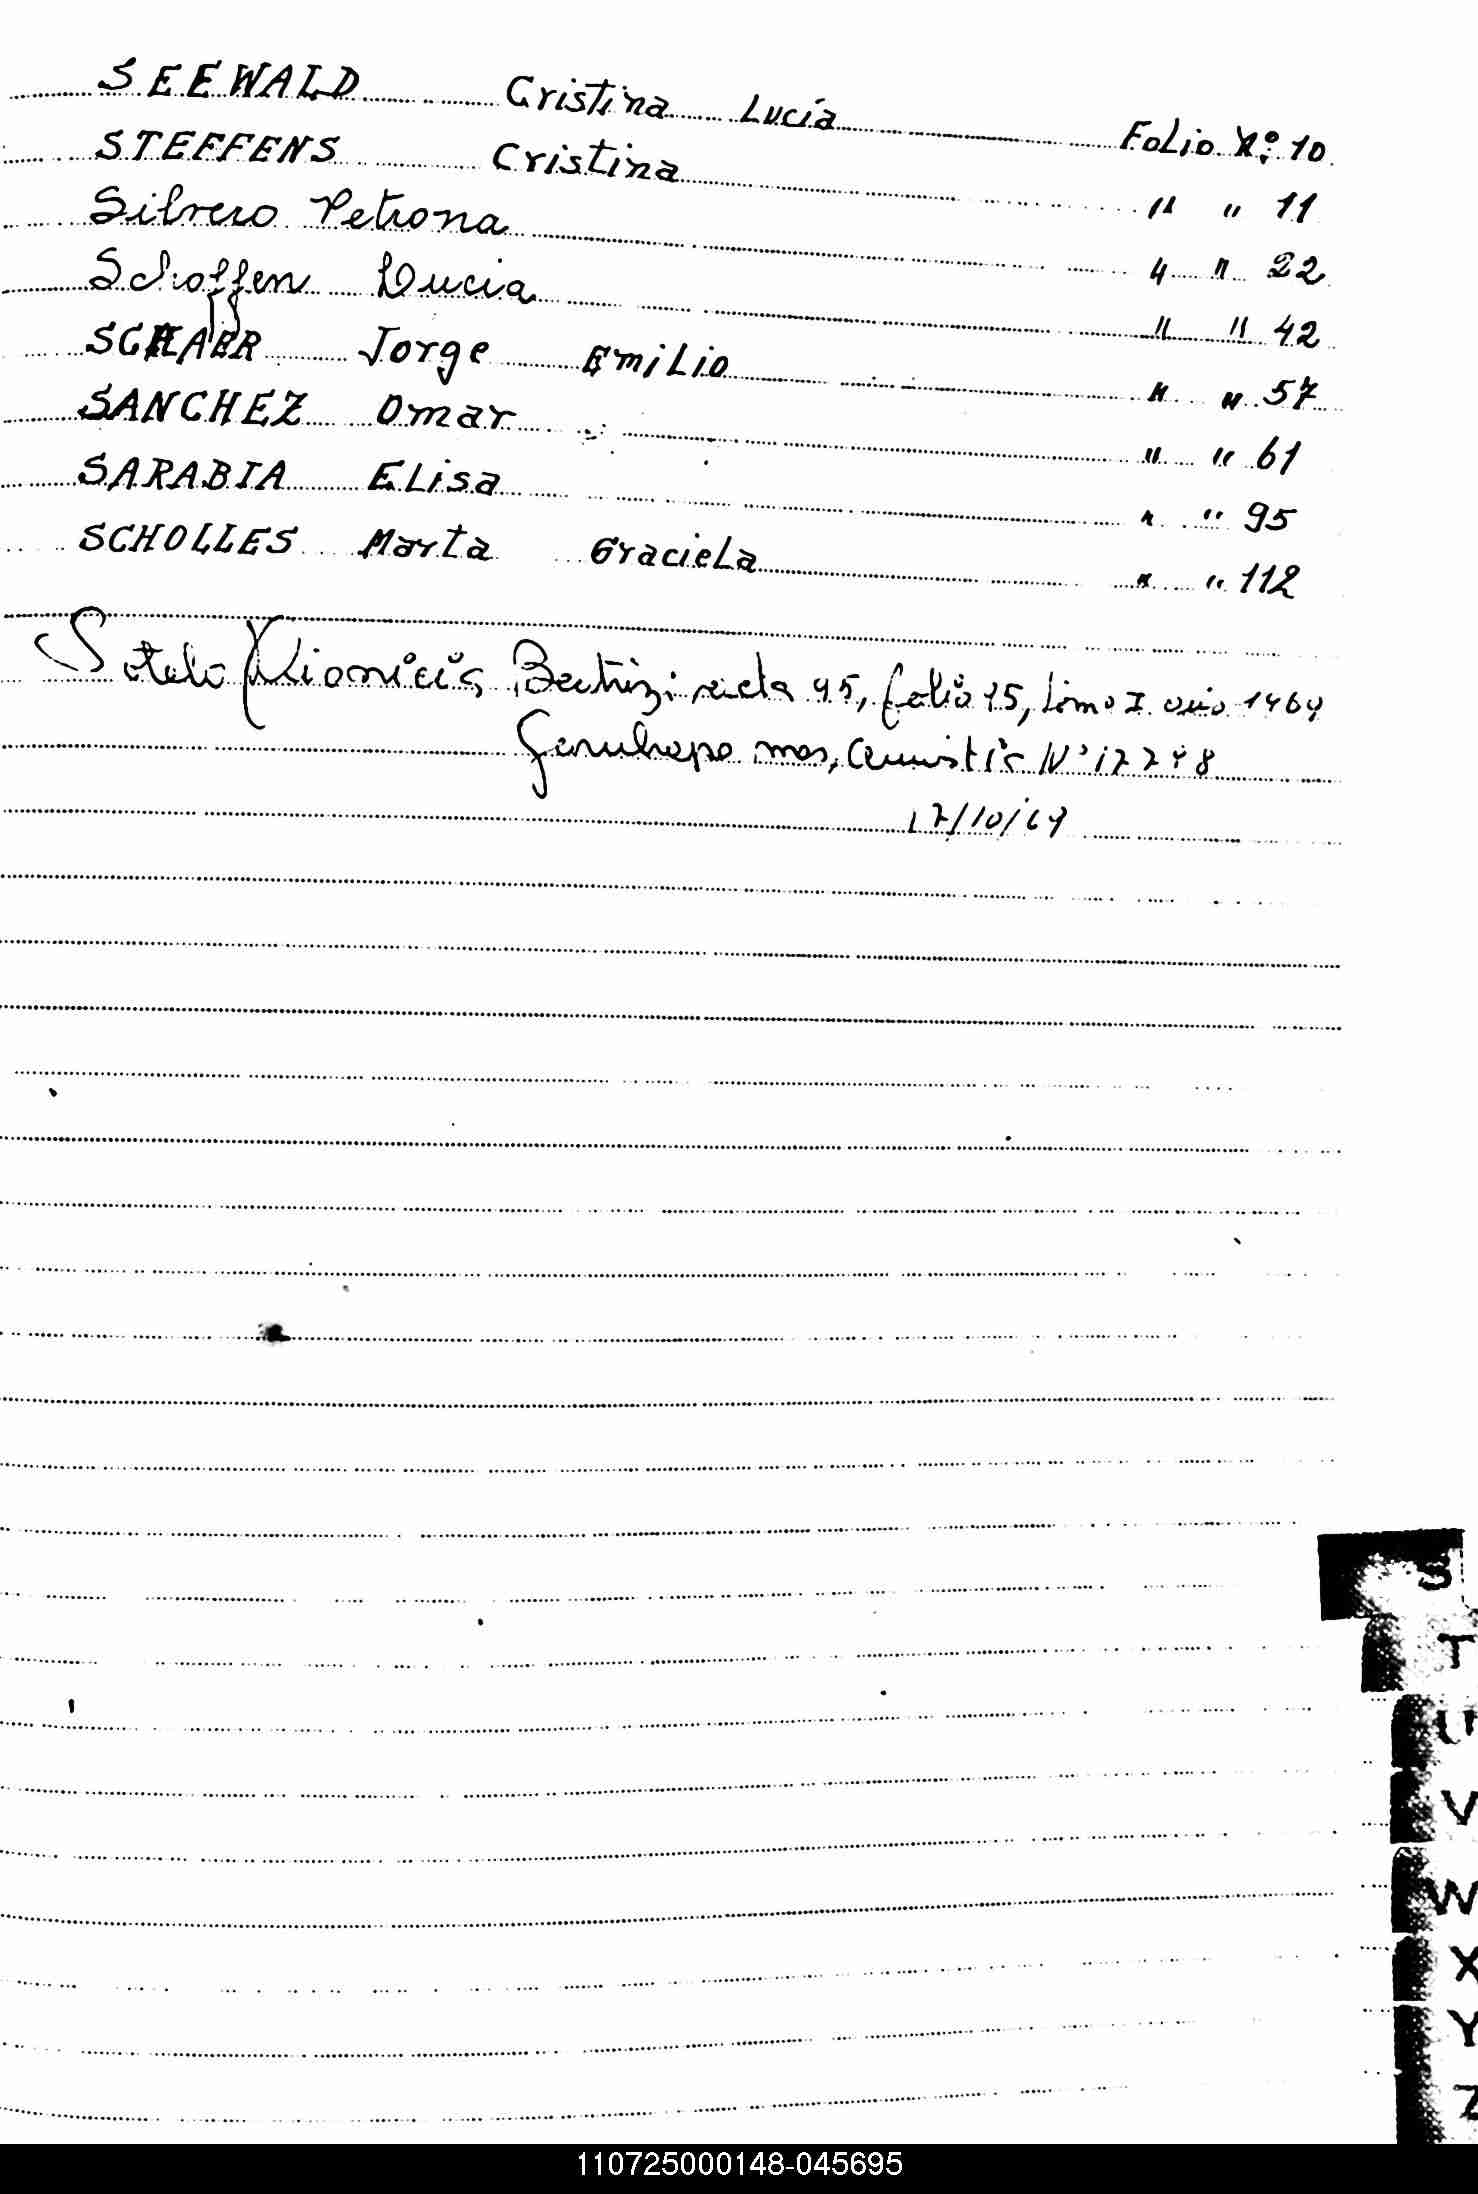 SEEWALD Cristina Lucía Folio Nº 10
STEFFENS Cristina " " 11
Silvero Petrona " " 22
Schoffen Lucia " " 42
SCHAER Jorge Emilio " " 57
SANCHEZ Omar " " 61
SARABIA Elisa " " 95
SCHOLLES Marta Graciela " " 112
Sotelo Dionicia Beatriz; acta 45, folio 15, tomo I año 1964
Garuhape mns, Amnistía Nº 17248
17/10/64
S
T
U
V
W
X
Y
Z
110725000148-045695